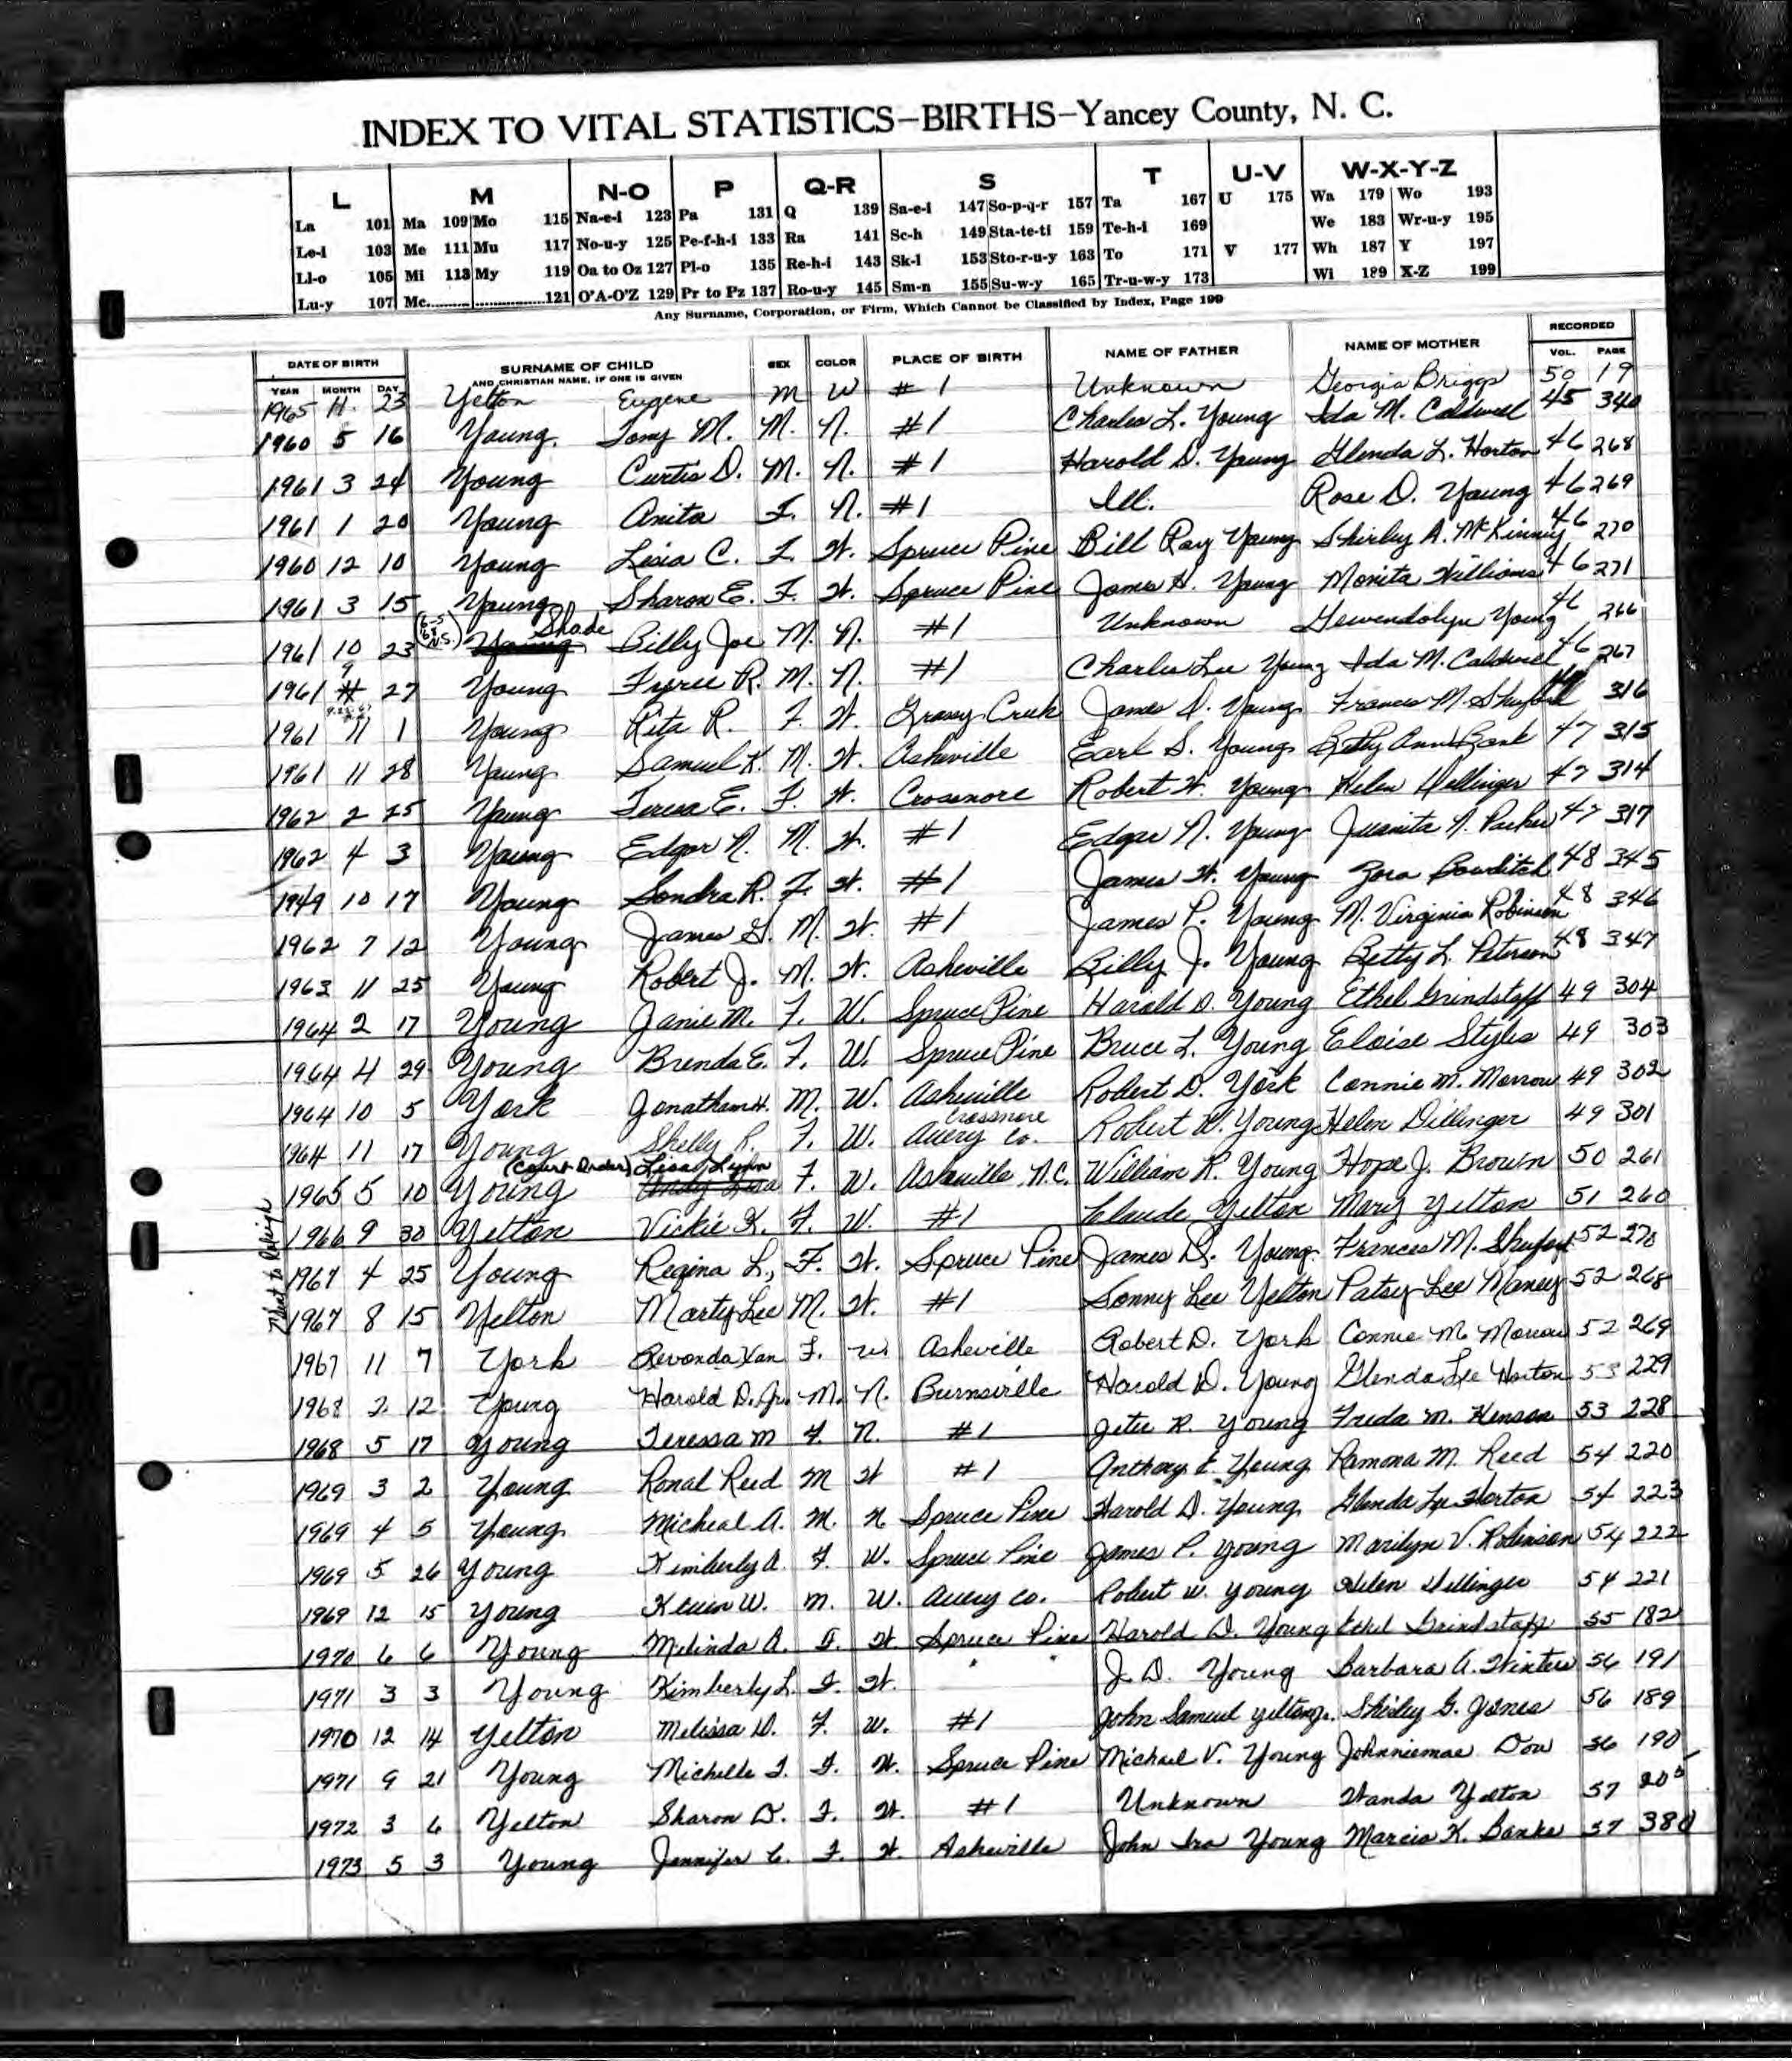 INDEX TO VITAL STATISTICS–BIRTHS–Yancey County, N. C.
L M N-O P Q-R S T U-V W-X-Y-Z
La 101 Ma 109 Mo 115 Na-e-i 123 Pa 131 Q 139 Sa-e-i 147 So-p-q-r 157 Ta 167 U 175 Wa 179 Wo 193
Le-i 103 Me 111 Mu 117 No-u-y 125 Pe-f-h-i 133 Ra 141 Sc-h 149 Sta-te-ti 159 Te-h-i 169 We 183 Wr-u-y 195
Ll-o 105 Mi 113 My 119 Oa to Oz 127 Pl-o 135 Re-h-i 143 Sk-l 153 Sto-r-u-y 163 To 171 V 177 Wh 187 Y 197
Lu-y 107 Mc 121 O'A-O'Z 129 Pr to Pz 137 Ro-u-y 145 Sm-n 155 Su-w-y 165 Tr-u-w-y 173 Wi 189 X-Z 199
Any Surname, Corporation, or Firm, Which Cannot be Classified by Index, Page 199
DATE OF BIRTH SURNAME OF CHILD SEX COLOR PLACE OF BIRTH NAME OF FATHER NAME OF MOTHER RECORDED
YEAR MONTH DAY AND CHRISTIAN NAME, IF ONE IS GIVEN VOL. PAGE
1965 11 23 Yelton Eugene M W #1 Unknown Georgia Briggs 50 19
1960 5 16 Young Tony M. M. N. #1 Charles L. Young Ida M. Caldwell 45 340
1961 3 24 Young Curtis D. M. N. #1 Harold D. Young Glenda L. Horton 46 268
1961 1 20 Young Anita F. N. #1 Ill. Rose D. Young 46 269
1960 12 10 Young Lisia C. F. W. Spruce Pine Bill Ray Young Shirley A. McKinney 46 270
1961 3 15 Young Sharon E. F. W. Spruce Pine James H. Young Monita Williams 46 271
1961 10 23 Young Shade Billy Joe M. N. #1 Unknown Gewendolyn Young 46 266
1961 9 27 Young Tyree R. M. N. #1 Charles Lee Young Ida M. Caldwell 46 267
1961 11 1 Young Rita R. F. W. Grassy Creek James D. Young Frances M. 316
1961 11 28 Young Samuel K. M. W. Asheville Earl S. Young Betty Ann Bank 47 315
1962 2 25 Young Teresa E. F. W. Crossnore Robert W. Young Helen Dellinger 47 314
1962 4 3 Young Edgar N. M. W. #1 Edgar N. Young Juanita N. Parker 47 317
1949 10 17 Young Sondra R. F. W. #1 James W. Young Zora Bowditch 48 345
1962 7 12 Young James G. M. W. #1 James P. Young M. Virginia Robinson 48 346
1963 11 25 Young Robert J. M. W. Asheville Billy J. Young Betty L. Peterson 48 347
1964 2 17 Young Janie M. F. W. Spruce Pine Harold D. Young Ethel Grindstaff 49 304
1964 4 29 Young Brenda E. F. W. Spruce Pine Bruce L. Young Eloise Styles 49 303
1964 10 5 York Jonathan H. M. W. Asheville Robert D. York Connie M. Morrow 49 302
1964 11 17 Young Shelly R. F. W. Crossnore Avery Co. Robert W. Young Helen Dillinger 49 301
(Court Order) Lisa Lynn
1965 5 10 Young F. W. Asheville N.C. William R. Young Hope J. Brown 50 261
1966 9 30 Yelton Vickie K. F. W. #1 Claude Yelton Mary Yelton 51 260
1967 4 25 Young Regina L., F. W. Spruce Pine James D. Young Frances M. Shuford 52 270
1967 8 15 Yelton Marty Lee M. W. #1 Sonny Lee Yelton Patsy Lee Maney 52 268
1967 11 7 York Revonda Xan F. W. Asheville Robert D. York Connie M. Morrow 52 269
1968 2 12 Young Harold D. Jr. M. N. Burnsville Harold D. Young Glenda Lee Horton 53 229
1968 5 17 Young Teressa M F. N. #1 Jeter R. Young Freda M. Henson 53 228
1969 3 2 Young Ronal Reed M W #1 Anthony E. Young Ramona M. Reed 54 220
1969 4 5 Young Micheal A. M. N Spruce Pine Harold D. Young Glenda Lee Horton 54 223
1969 5 26 Young Kimberly A. F. W. Spruce Pine James P. Young Marilyn V. Robinson 54 222
1969 12 15 Young Kevin W. M. W. Avery Co. Robert W. Young Helen Dellinger 54 221
1970 6 6 Young Melinda A. F. W. Spruce Pine Harold D. Young Ethel Grindstaff 55 182
1971 3 3 Young Kimberly L. F. W. " " J. D. Young Barbara A. Winters 56 191
1970 12 14 Yelton Melissa D. F. W. #1 John Samuel Yelton Jr. Shirley G. Jones 56 189
1971 9 21 Young Michelle F. W. Spruce Pine Michael V. Young Johnniemae Dow 56 190
1972 3 6 Yelton Sharon D. F. W. #1 Unknown Wanda Yelton 57 200
1973 5 3 Young Jennifer C. F. W. Asheville John Ira Young Marcia K. Banks 57 380